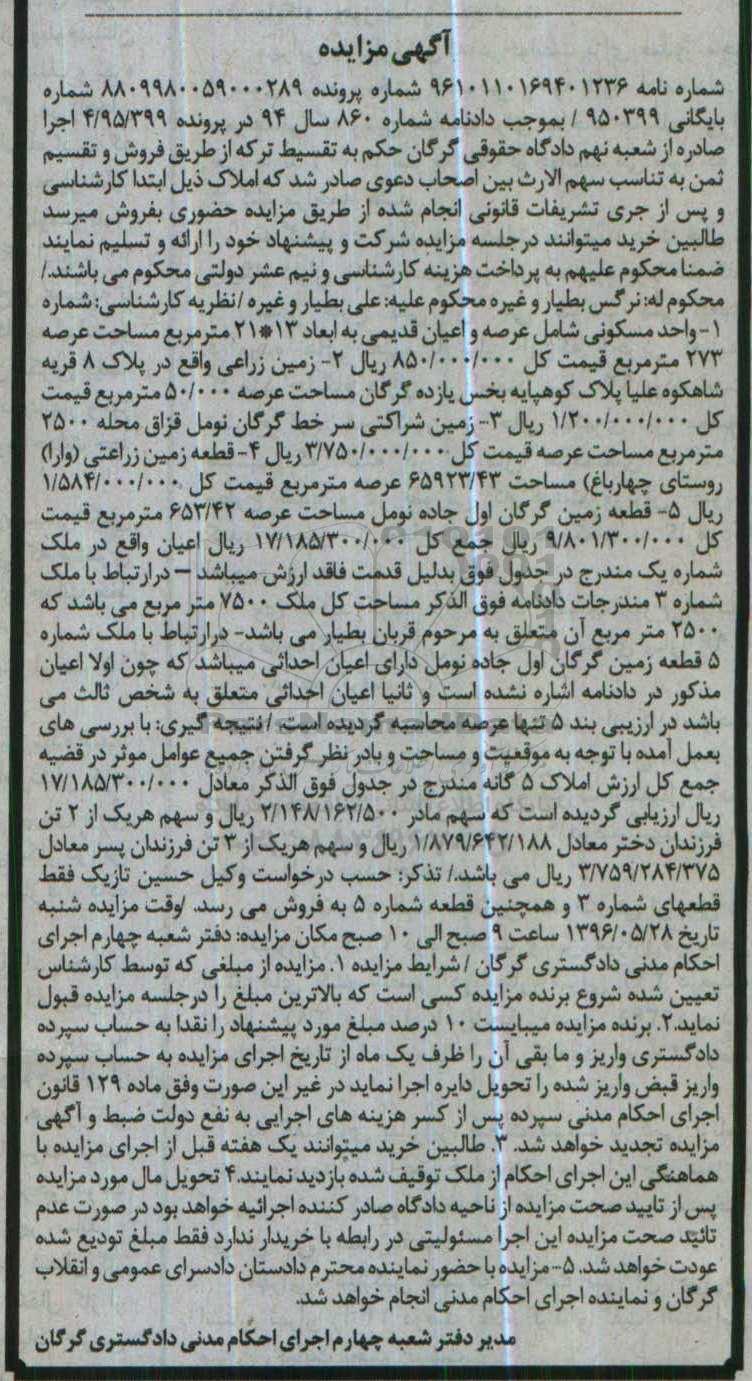 آگهی مزایده
شماره نامه ۹۶۱۰۱۱۰۱۶۹۴۰۱۲۳۶ شماره پرونده ۸۸۰۹۹۸۰۰۵۹۰۰۰۲۸۹ شماره
بایگانی ۹۵۰۳۹۹ / بموجب دادنامه شماره ۸۶۰ سال ۹۴ در پرونده ۴/۹۵/۳۹۹ اجرا
صادره از شعبه نهم دادگاه حقوقی گرگان حکم به تقسیط ترکه از طریق فروش و تقسیم
ثمن به تناسب سهم الارث بین اصحاب دعوی صادر شد که املاک ذیل ابتدا کارشناسی
و پس از جری تشریفات قانونی انجام شده از طریق مزایده حضوری بفروش میرسد
طالبین خرید میتوانند درجلسه مزایده شرکت و پیشنهاد خود را ارائه و تسلیم نمایند
ضمنا محکوم علیهم به پرداخت هزینه کارشناسی و نیم عشر دولتی محکوم می باشند./
محکوم له: نرگس بطیار و غیره محکوم علیه: علی بطیار و غیره /نظریه کارشناسی: شماره
۱- واحد مسکونی شامل عرصه و اعیان قدیمی به ابعاد ۱۳*۲۱ مترمربع مساحت عرصه
۲۷۳ مترمربع قیمت کل ۸۵۰/۰۰۰/۰۰۰ ریال ۲- زمین زراعی واقع در پلاک ۸ قریه
شاهکوه علیا پلاک کوهپایه بخش یازده گرگان مساحت عرصه ۵۰/۰۰۰ مترمربع قیمت
کل ۱/۲۰۰/۰۰۰/۰۰۰ ریال ۳- زمین شراکتی سر خط گرگان نومل قزاق محله ۲۵۰۰
مترمربع مساحت عرصه قیمت کل ۳/۷۵۰/۰۰۰/۰۰۰ ریال ۴- قطعه زمین زراعتی (وارا)
روستای چهارباغ) مساحت ۶۵۹۲۳/۴۳ عرصه مترمربع قیمت کل ۱/۵۸۴/۰۰۰/۰۰۰
ریال ۵- قطعه زمین گرگان اول جاده نومل مساحت عرصه ۶۵۳/۴۲ مترمربع قیمت
کل ۹/۸۰۱/۳۰۰/۰۰۰ ریال جمع کل ۱۷/۱۸۵/۳۰۰/۰۰۰ ریال اعیان واقع در ملک
شماره یک مندرج در جدول فوق بدلیل قدمت فاقد ارزش میباشد – درارتباط با ملک
شماره ۳ مندرجات دادنامه فوق الذکر مساحت کل ملک ۷۵۰۰ متر مربع می باشد که
۲۵۰۰ متر مربع آن متعلق به مرحوم قربان بطیار می باشد- درارتباط با ملک شماره
۵ قطعه زمین گرگان اول جاده نومل دارای اعیان احداثی میباشد که چون اولا اعیان
مذکور در دادنامه اشاره نشده است و ثانیا اعیان احداثی متعلق به شخص ثالث می
باشد در ارزیبی بند ۵ تنها عرصه محاسبه گردیده است. / نتیجه گیری: با بررسی های
بعمل آمده با توجه به موقعیت و مساحت و بادر نظر گرفتن جمیع عوامل موثر در قضیه
جمع کل ارزش املاک ۵ گانه مندرج در جدول فوق الذکر معادل ۱۷/۱۸۵/۳۰۰/۰۰۰
ریال ارزیابی گردیده است که سهم مادر ۲/۱۴۸/۱۶۲/۵۰۰ ریال و سهم هریک از ۲ تن
فرزندان دختر معادل ۱/۸۷۹/۶۴۲/۱۸۸ ریال و سهم هریک از ۳ تن فرزندان پسر معادل
۳/۷۵۹/۲۸۴/۳۷۵ ریال می باشد./ تذکر: حسب درخواست وکیل حسین تازیک فقط
قطعهای شماره ۳ و همچنین قطعه شماره ۵ به فروش می رسد. /وقت مزایده شنبه
تاریخ ۱۳۹۶/۰۵/۲۸ ساعت ۹ صبح الی ۱۰ صبح مکان مزایده: دفتر شعبه چهارم اجرای
احکام مدنی دادگستری گرگان / شرایط مزایده ۱. مزایده از مبلغی که توسط کارشناس
تعیین شده شروع برنده مزایده کسی است که بالاترین مبلغ را درجلسه مزایده قبول
نماید.۲. برنده مزایده میبایست ۱۰ درصد مبلغ مورد پیشنهاد را نقدا به حساب سپرده
دادگستری واریز و ما بقی آن را ظرف یک ماه از تاریخ اجرای مزایده به حساب سپرده
واریز قبض واریز شده را تحویل دایره اجرا نماید در غیر این صورت وفق ماده ۱۲۹ قانون
اجرای احکام مدنی سپرده پس از کسر هزینه های اجرایی به نفع دولت ضبط و آگهی
مزایده تجدید خواهد شد. ۳. طالبین خرید میتوانند یک هفته قبل از اجرای مزایده با
هماهنگی این اجرای احکام از ملک توقیف شده بازدید نمایند.۴ تحویل مال مورد مزایده
پس از تایید صحت مزایده از ناحیه دادگاه صادر کننده اجرائیه خواهد بود در صورت عدم
تائید صحت مزایده این اجرا مسئولیتی در رابطه با خریدار ندارد فقط مبلغ تودیع شده
عودت خواهد شد. ۵- مزایده با حضور نماینده محترم دادستان دادسرای عمومی و انقلاب
گرگان و نماینده اجرای احکام مدنی انجام خواهد شد.
مدیر دفتر شعبه چهارم اجرای احکام مدنی دادگستری گرگان